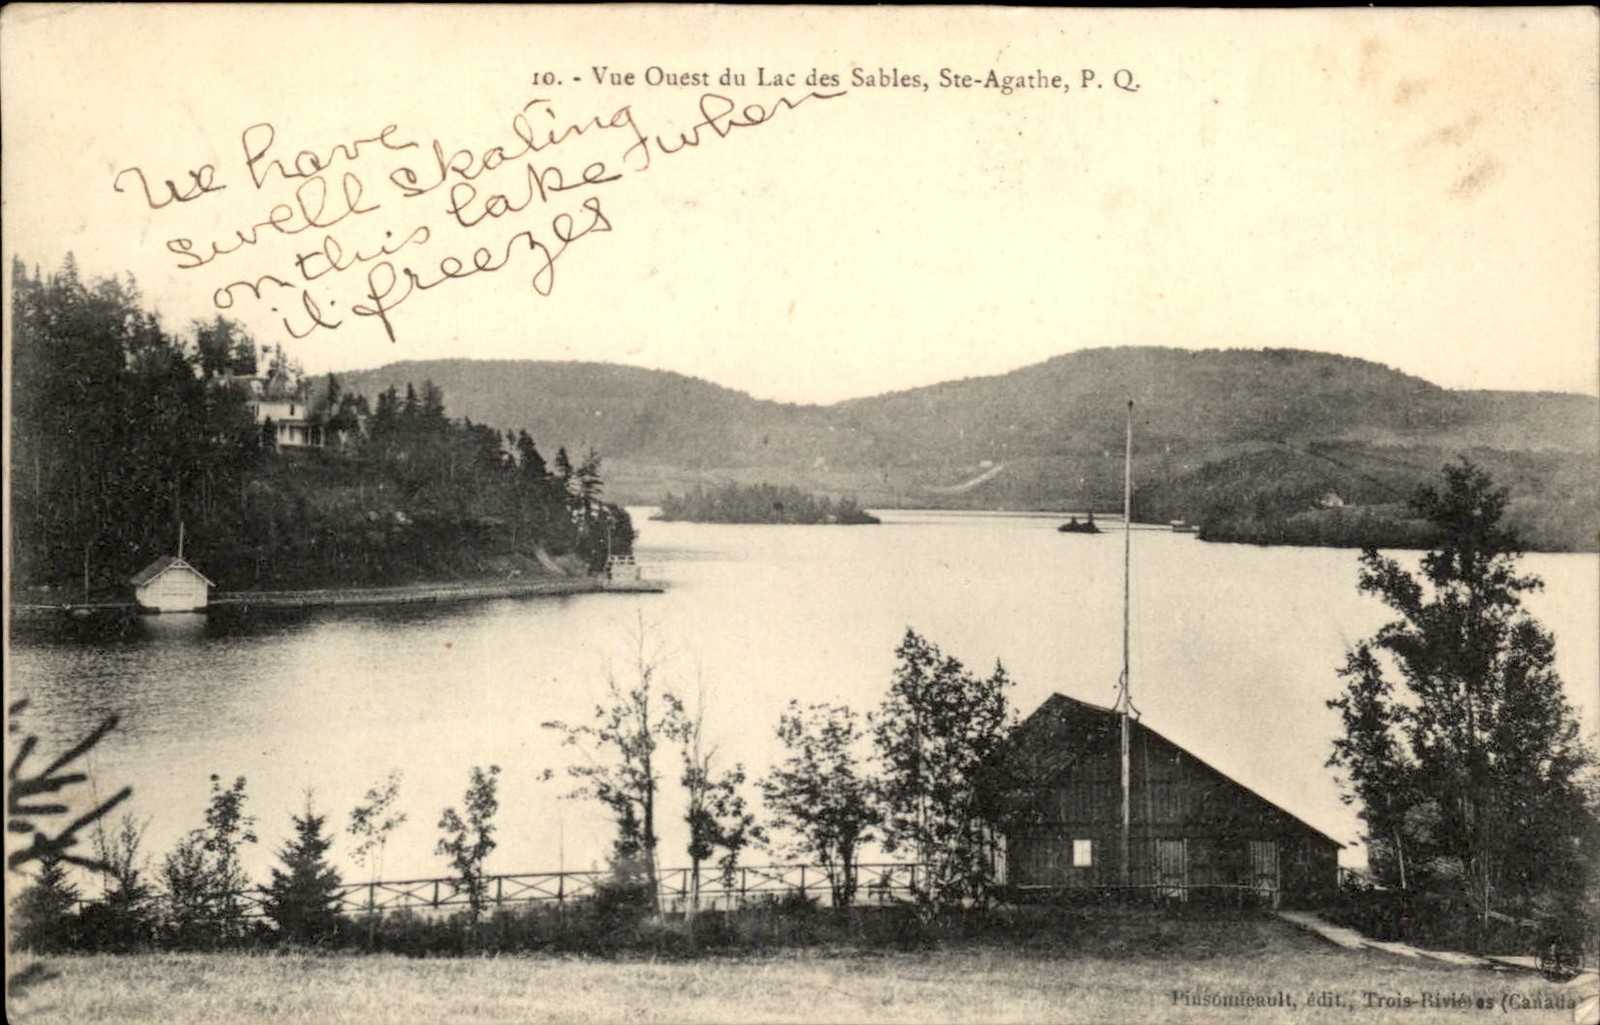 10. - Vue Ouest du Lac des Sables, Ste-Agathe, P. Q.
We have
swell skating
on this lake when
it freezes
Pinsonneault, édit., Trois-Rivières (Canada)